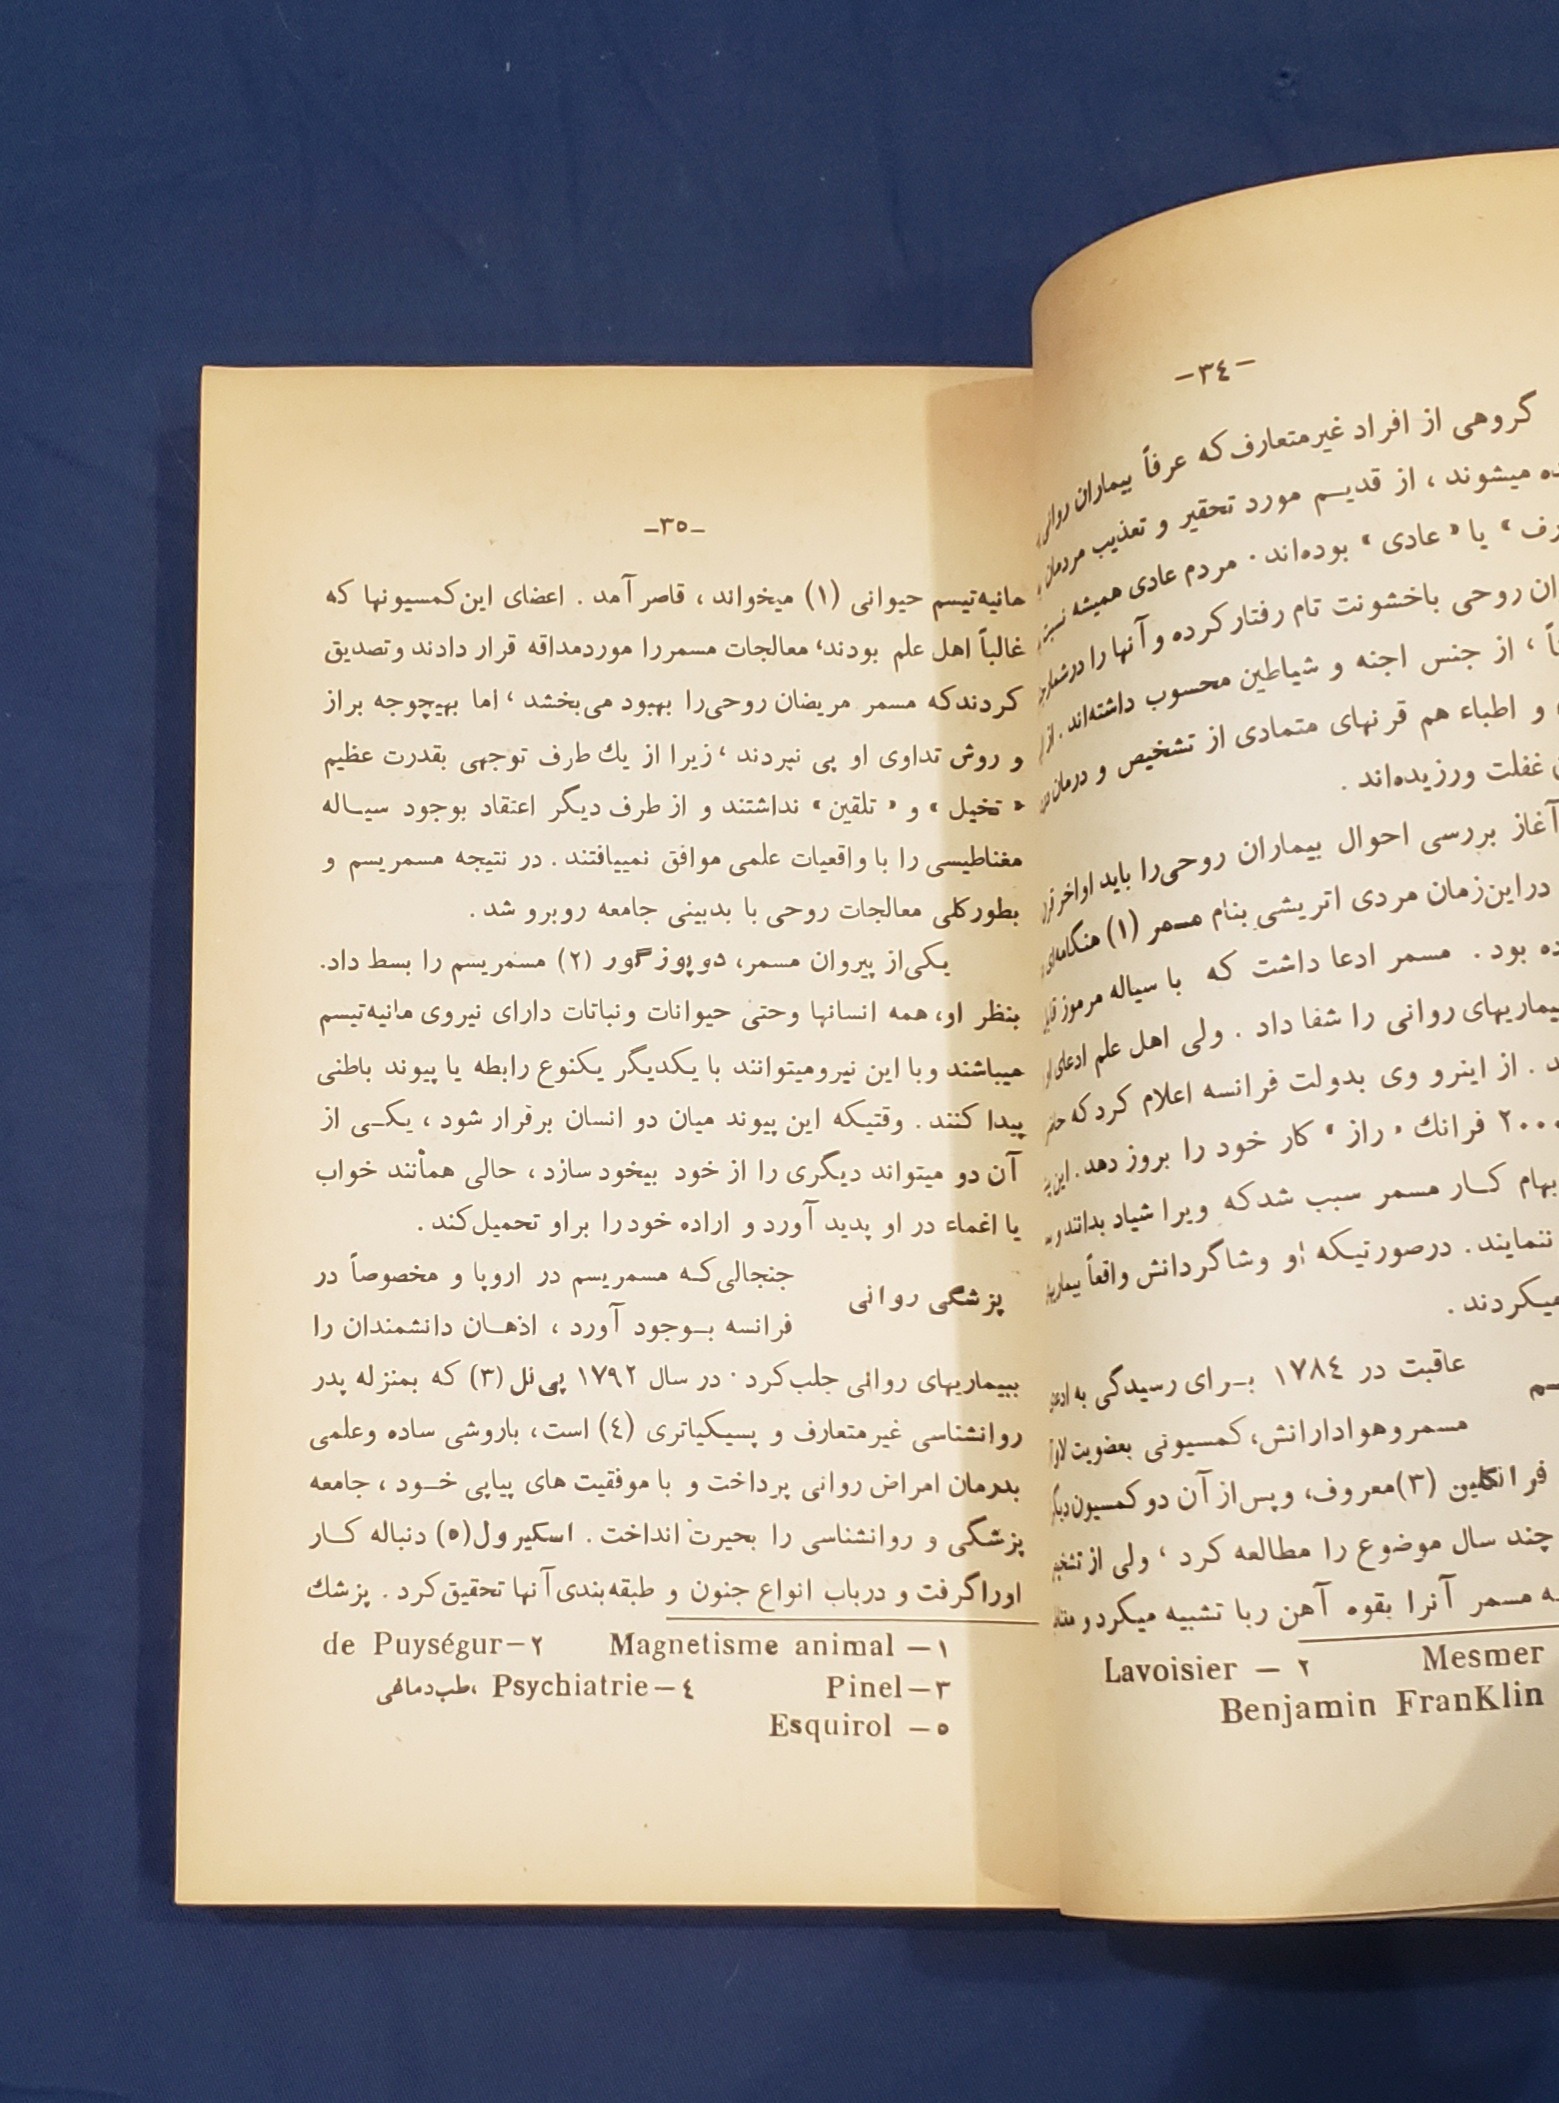 -٣٤-
گروهی از افراد غیرمتعارف که عرفاً بیماران روانی
میشوند ، از قدیم مورد تحقیر و تعذیب مردمان
یا « عادی » بوده‌اند . مردم عادی همیشه نسبت
روحی باخشونت تام رفتار کرده و آنها را در شمار
، از جنس اجنه و شیاطین محسوب داشته‌اند . از
و اطباء هم قرنهای متمادی از تشخیص و درمان
غفلت ورزیده‌اند .
آغاز بررسی احوال بیماران روحی‌را باید اواخر قرن
دراین‌زمان مردی اتریشی بنام مسمر (١) هنگامه‌ای
بود . مسمر ادعا داشت که با سیاله مرموز
بیماریهای روانی را شفا داد . ولی اهل علم ادعای او
. از اینرو وی بدولت فرانسه اعلام کرد که
فرانك « راز » کار خود را بروز دهد . این
کـار مسمر سبب شدکه ویرا شیاد بدانند و
ننمایند . درصورتیکه او وشاگردانش واقعاً
میکردند .
عاقبت در ١٧٨٤ بـرای رسیدگی به
مسمر وهوادارانش، کمسیونی بعضویت
فرانکلین (٣)معروف، وپس‌از آن دو کمسیون دیگر
چند سال موضوع را مطالعه کرد ، ولی از
مسمر آنرا بقوه آهن ربا تشبیه میکرد و
Mesmer
Lavoisier — ٢
Benjamin FranKlin
-٣٥-
مانیه‌تیسم حیوانی (١) میخواند ، قاصر آمد . اعضای این‌کمسیونها که
غالباً اهل علم بودند، معالجات مسمررا موردمداقه قرار دادند وتصدیق
کردندکه مسمر مریضان روحی‌را بهبود می‌بخشد ، اما بهیچوجه براز
و روش تداوی او پی نبردند ، زیرا از یك طرف توجهی بقدرت عظیم
« تخیل » و « تلقین » نداشتند و از طرف دیگر اعتقاد بوجود سیـاله
مغناطیسی را با واقعیات علمی موافق نمییافتند . در نتیجه مسمریسم و
بطورکلی معالجات روحی با بدبینی جامعه روبرو شد .
یکی‌از پیروان مسمر، دوپوزگور (٢) مسمریسم را بسط داد.
بنظر او، همه انسانها وحتی حیوانات ونباتات دارای نیروی مانیه‌تیسم
میباشند وبا این نیرومیتوانند با یکدیگر یکنوع رابطه یا پیوند باطنی
پیدا کنند . وقتیکه این پیوند میان دو انسان برقرار شود ، یکـی از
آن دو میتواند دیگری را از خود بیخود سازد ، حالی همانند خواب
یا اغماء در او پدید آورد و اراده خودرا براو تحمیل‌کند .
پزشگی روانی
جنجالی‌کـه مسمریسم در اروپا و مخصوصاً در
فرانسه بـوجود آورد ، اذهـان دانشمندان را
ببیماریهای روانی جلب‌کرد . در سال ١٧٩٢ پی‌نل (٣) که بمنزله پدر
روانشناسی غیرمتعارف و پسیکیاتری (٤) است، باروشی ساده وعلمی
بدرمان امراض روانی پرداخت و با موفقیت های پیاپی خـود ، جامعه
پزشگی و روانشناسی را بحیرت انداخت . اسکیرول(٥) دنباله کـار
اوراگرفت و درباب انواع جنون و طبقه‌بندی‌آنها تحقیق‌کرد . پزشك
١— Magnetisme animal ٢—de Puységur
٣—Pinel ٤—Psychiatrie ،طب‌دماغی
٥— Esquirol